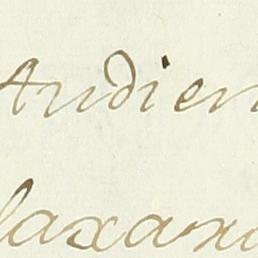 Audien
laxand